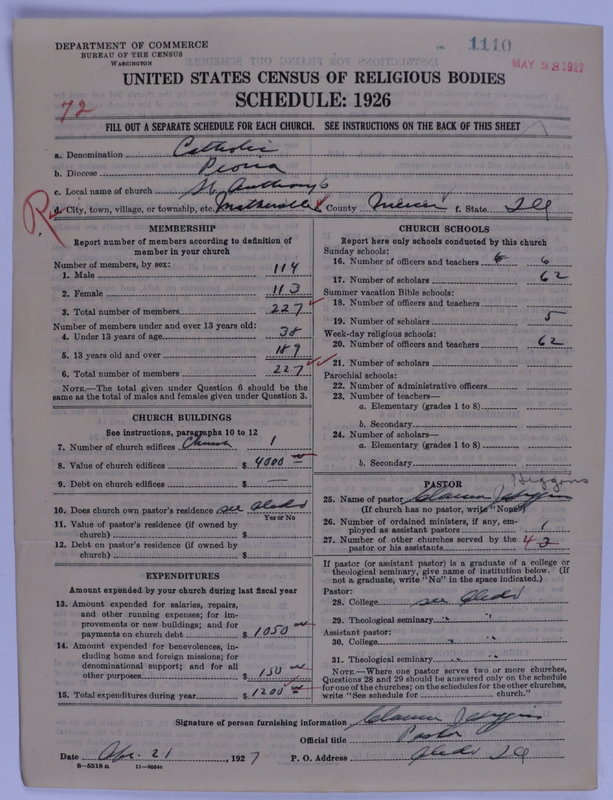 DEPARTMENT OF COMMERCE
BUREAU OF THE CENSUS
WASHINGTON
1110
MAY 23 1927
UNITED STATES CENSUS OF RELIGIOUS BODIES
SCHEDULE: 1926
72
FILL OUT A SEPARATE SCHEDULE FOR EACH CHURCH. SEE INSTRUCTIONS ON THE BACK OF THIS SHEET
a. Denomination Catholic
b. Diocese Peoria
c. Local name of church St. Anthony's
d. City, town, village, or township, etc. Matherville County Mercer f. State Ill
R
MEMBERSHIP
Report number of members according to definition of
member in your church
Number of members, by sex:
1. Male 114
2. Female 113
3. Total number of members 227
Number of members under and over 13 years old:
4. Under 13 years of age 38
5. 13 years old and over 189
6. Total number of members 227
NOTE.—The total given under Question 6 should be
same as the total of males and females given under Question 3.
CHURCH BUILDINGS
See instructions, paragraphs 10 to 12
7. Number of church edifices Church 1
8. Value of church edifices $ 4000
9. Debt on church edifices $ —
10. Does church own pastor's residence see Aledo
Yes or No
11. Value of pastor's residence (if owned by
church) $
12. Debt on pastor's residence (if owned by
church) $
EXPENDITURES
Amount expended by your church during last fiscal year
13. Amount expended for salaries, repairs,
and other running expenses; for im-
provements or new buildings; and for
payments on church debt $ 1050
14. Amount expended for benevolences, in-
cluding home and foreign missions; for
denominational support; and for all
other purposes $ 150
15. Total expenditures during year $ 1200
CHURCH SCHOOLS
Report here only schools conducted by this church
Sunday schools:
16. Number of officers and teachers 6 6
17. Number of scholars 62
Summer vacation Bible schools:
18. Number of officers and teachers
19. Number of scholars 5
Week-day religious schools:
20. Number of officers and teachers 62
21. Number of scholars
Parochial schools:
22. Number of administrative officers
23. Number of teachers—
a. Elementary (grades 1 to 8)
b. Secondary
24. Number of scholars—
a. Elementary (grades 1 to 8)
b. Secondary
PASTOR
Higgins
25. Name of pastor Clarence J Higgins
(If church has no pastor, write "None")
26. Number of ordained ministers, if any, em-
ployed as assistant pastors 1
27. Number of other churches served by the
pastor or his assistants 4
If pastor (or assistant pastor) is a graduate of a college or
theological seminary, give name of institution below. (If
not a graduate, write "No" in the space indicated.)
Pastor:
28. College see Aledo
29. Theological seminary " "
Assistant pastor:
30. College " "
31. Theological seminary " "
NOTE.—Where one pastor serves two or more churches,
Questions 28 and 29 should be answered only on the schedule
for one of the churches; on the schedules for the other churches,
write "See schedule for church."
Signature of person furnishing information Clarence J Higgins
Official title Pastor
Date Apr. 21, 1927 P. O. Address Aledo Ill
8—5518a 11—9664c